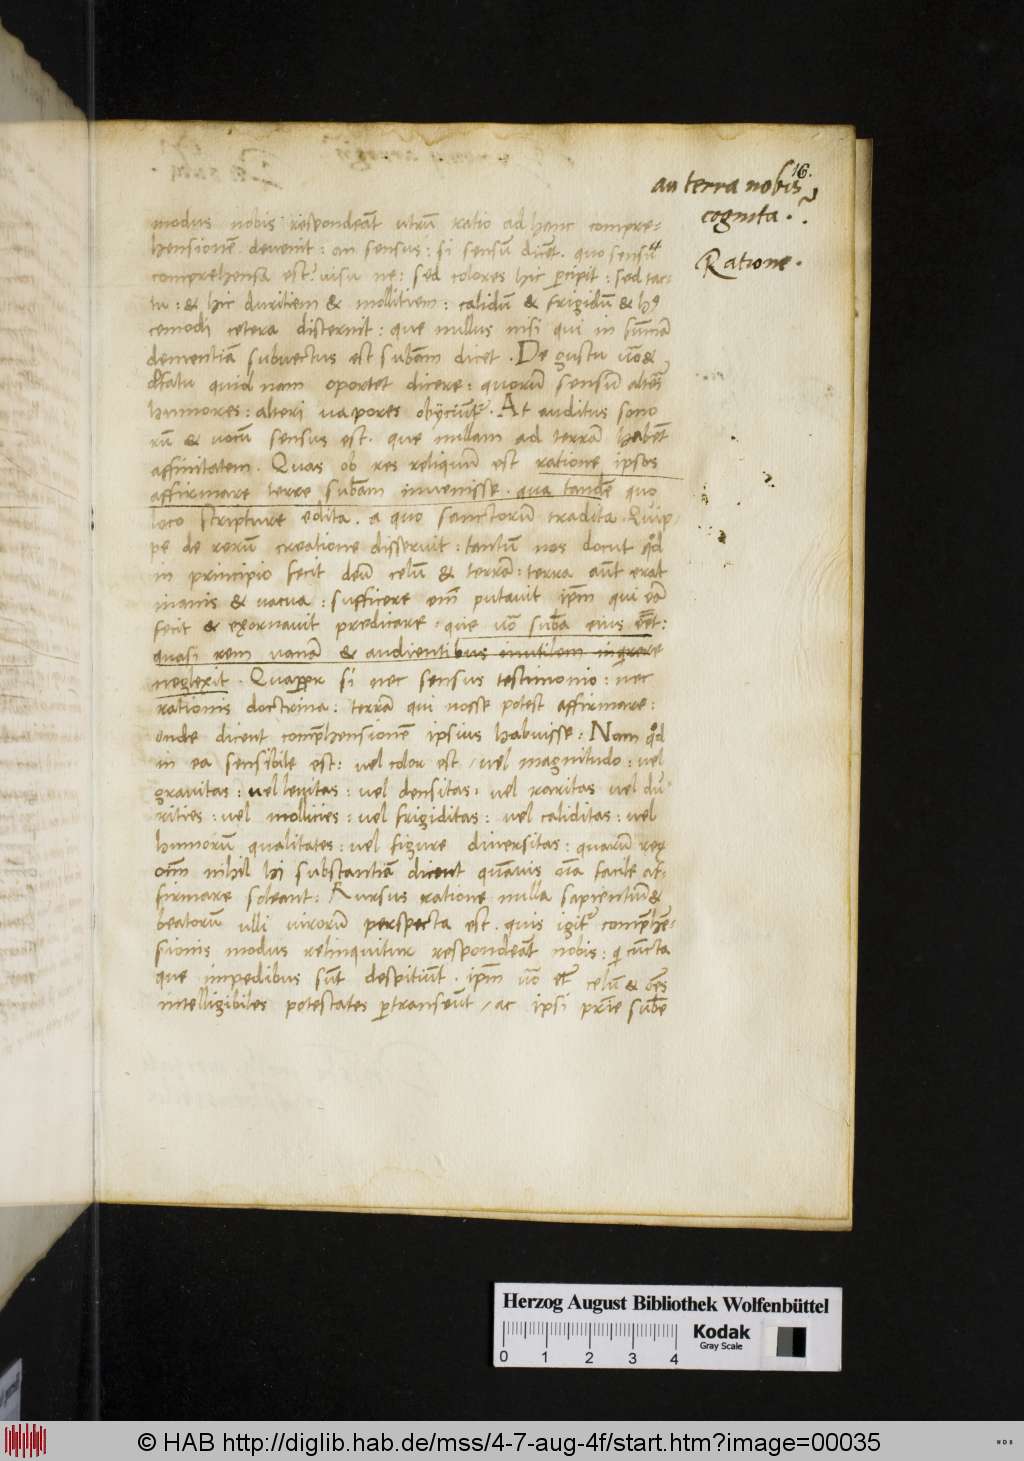 16.
an terra nobis
cognita . ?
Ratione .
modus nobis respondeāt utrū ratio ad hanc compre=
hensionē devenit : an sensus : si sensū dicēt . quo sensu
comprehensa est? visu ne : sed colores hic p̄cipit : sed tac-
tu : & hic duritiem & mollitiem : calidū & frigidū & hꝰ
cemodi cetera discernit : que nullus nisi qui in sūmā
dementiā subvectus est subām dicet . De gustu uō &
olfatu quid nam oportet dicere : quorū sensū alteri
humores : alteri vapores obijciunt̄ . At auditus sono
rū & vocū sensus est . que nullam ad terrā habēt
affinitatem . Quas ob res reliquū est ratione ipsos
affirmare terre subām invenisse . qua tandē quo
loco scripture edita . a quo sanctorū tradita . Quip-
pe de rerū creatione disseruit : tantū nos docuit qd̄
in principio fecit deus celū & terrā : terra aūt erat
inanis & vacua : sufficere em̄ putavit ip̄m qui eā
fecit & exornavit predicare . que uō subā eius eēt :
quasi rem vanā & audientibus inutilem inqrere
neglexit . Quapp̄r si nec sensus testimonio : nec
rationis doctrina : terrā qui nosse potest affirmare :
unde dicent comp̄hensionē ipsius habuisse : Nam qd̄
in ea sensibile est : vel color est / vel magnitudo : vel
gravitas : vel levitas : vel densitas : vel raritas vel du
rities : vel mollicies : vel frigiditas : vel caliditas : vel
humorū qualitates : vel figure diversitas : quarū reꝝ
om̄ nihil hi substantiā dicent quāvis oīa facile af-
firmare soleant : Rursus ratione nulla sapientiū &
beatorū ulli virorū perspecta est . quis igit̄ comp̄hē-
sionis modus relinquitur respondeāt nobis : q̄ cūcta
que inpedibus sūt despitiūt . ip̄m uō et̄ celū & oēs
intelligibiles potestates p̄transeūt / ac ipsi prīe subē
Herzog August Bibliothek Wolfenbüttel
Kodak
Gray Scale
0 1 2 3 4
© HAB http://diglib.hab.de/mss/4-7-aug-4f/start.htm?image=00035